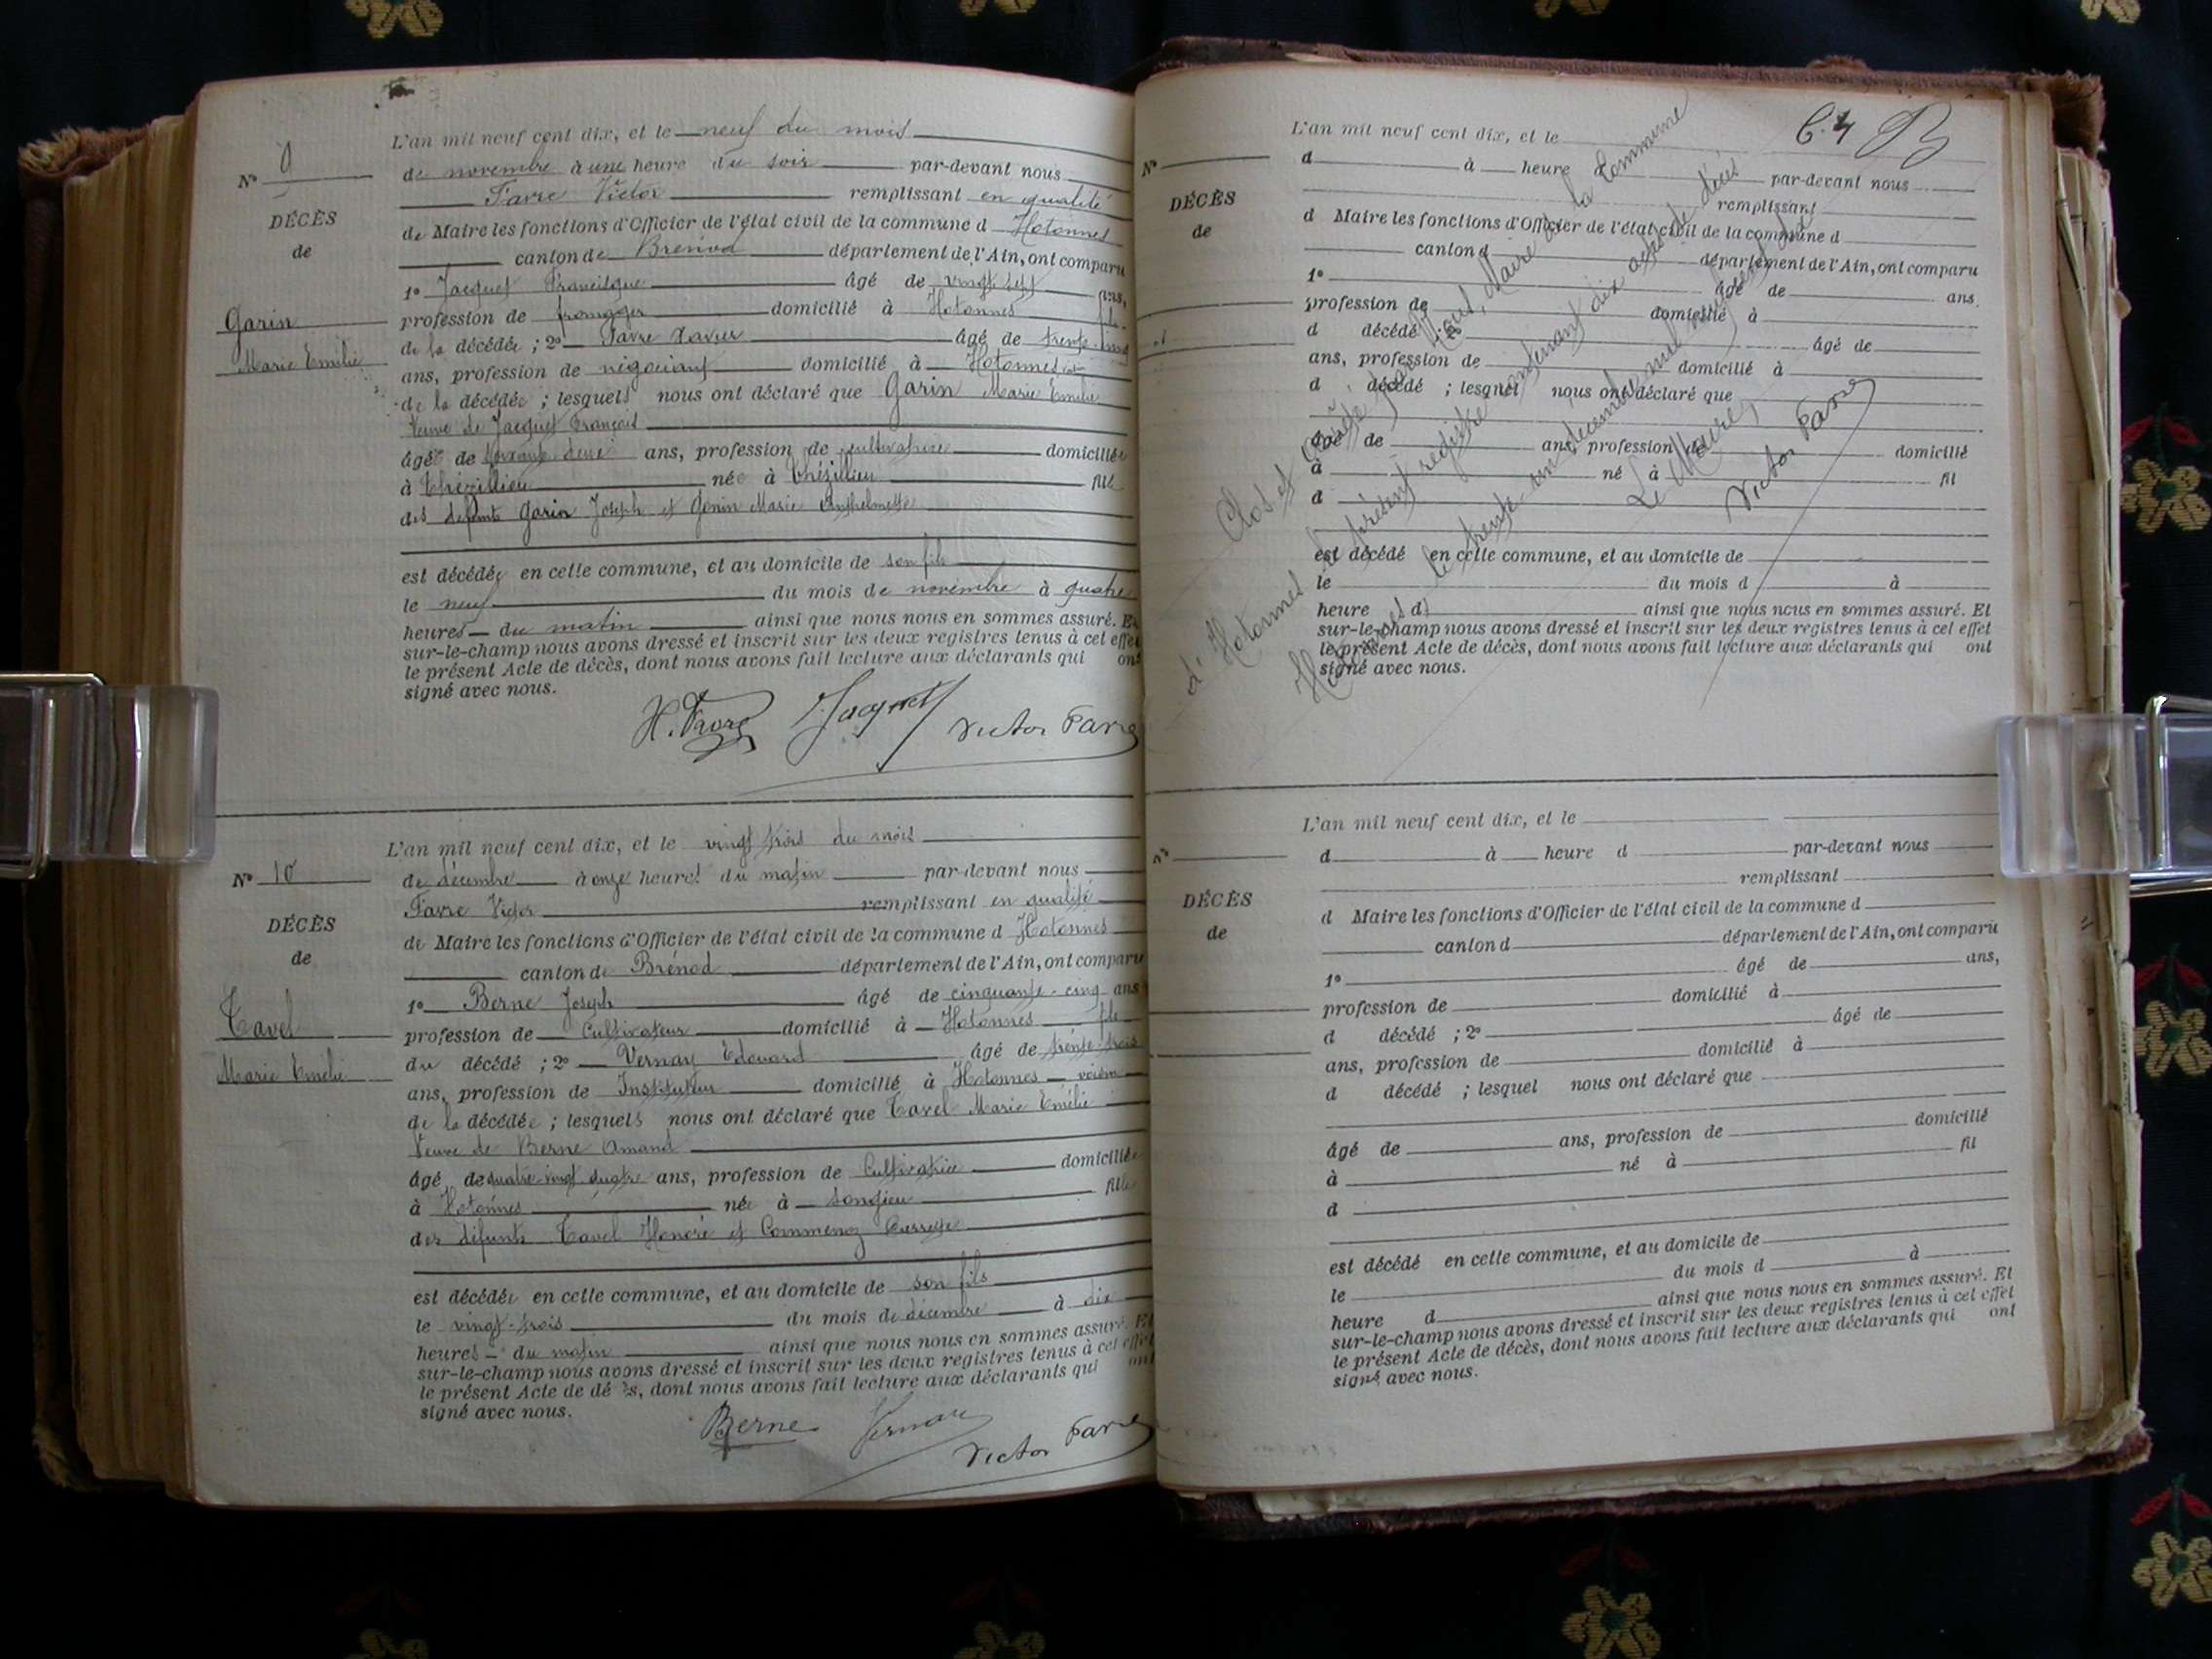 L'an mil neuf cent dix, et le neuf du mois
Nº 9
de novembre à une heure du soir par-devant nous
Favre Victor remplissant en qualité
DÉCÈS
de Maire les fonctions d'Officier de l'état civil de la commune d Hotonnes
de
canton de Brénod département de l'Ain, ont comparu
1º Jacquet Francisque âgé de vingt sept ans,
Garin
profession de fromager domicilié à Hotonnes fils
de la décédée ; 2º Favre âgé de trente cinq
Marie Emélie
ans, profession de négociant domicilié à Hotonnes
de la décédée ; lesquels nous ont déclaré que Garin Marie Emélie
Veuve de Jacquet François
âgée de soixante deux ans, profession de cultivatrice domiciliée
à Thézillieu née à Thézillieu fille
des défunts Garin Joseph et Genin Marie Anthelmette
est décédée en cette commune, et au domicile de son fils
le neuf du mois de novembre à quatre
heures du matin ainsi que nous nous en sommes assuré. Et
sur-le-champ nous avons dressé et inscrit sur les deux registres tenus à cet effet
le présent Acte de décès, dont nous avons fait lecture aux déclarants qui ont
signé avec nous.
H. Favre Jacquet Victor Favre
L'an mil neuf cent dix, et le vingt trois du mois
Nº 10
de décembre à onze heures du matin par-devant nous
Favre Victor remplissant en qualité
DÉCÈS
de Maire les fonctions d'Officier de l'état civil de la commune d Hotonnes
de
canton de Brénod département de l'Ain, ont comparu
1º Berne Joseph âgé de cinquante-cinq ans
Tavel
profession de Cultivateur domicilié à Hotonnes fils
du décédé ; 2º Vernay Edouard âgé de trente-trois
Marie Emélie
ans, profession de Instituteur domicilié à Hotonnes voisin
de la décédée ; lesquels nous ont déclaré que Tavel Marie Emélie
Veuve de Berne Amand
âgé de quatre-vingt-quatre ans, profession de Cultivatrice domiciliée
à Hotonnes née à Songieu fille
des défunts Tavel Honoré et Commenoz Pierrette
est décédée en cette commune, et au domicile de son fils
le vingt-trois du mois de décembre à dix
heures du matin ainsi que nous nous en sommes assuré. Et
sur-le-champ nous avons dressé et inscrit sur les deux registres tenus à cet effet
le présent Acte de décès, dont nous avons fait lecture aux déclarants qui ont
signé avec nous.
Berne Vernay Victor Favre
L'an mil neuf cent dix, et le
Nº
d à heure d par-devant nous
remplissant
DÉCÈS
d Maire les fonctions d'Officier de l'état civil de la commune d
de
canton d département de l'Ain, ont comparu
1º âgé de ans,
profession de domicilié à
d décédé ; 2º âgé de
ans, profession de domicilié à
d décédé ; lesquel nous ont déclaré que
âgé de ans, profession de domicilié
à né à fil
d
est décédé en cette commune, et au domicile de
le du mois d à
heure d ainsi que nous nous en sommes assuré. Et
sur-le-champ nous avons dressé et inscrit sur les deux registres tenus à cet effet
le présent Acte de décès, dont nous avons fait lecture aux déclarants qui ont
signé avec nous.
Clos et arrêté par Nous, Maire de la Commune
d'Hotonnes le présent registre contenant dix actes de décès
Hotonnes, le trente-un décembre mil neuf cent dix
Le Maire,
Victor Favre
L'an mil neuf cent dix, et le
Nº
d à heure d par-devant nous
remplissant
DÉCÈS
d Maire les fonctions d'Officier de l'état civil de la commune d
de
canton d département de l'Ain, ont comparu
1º âgé de ans,
profession de domicilié à
d décédé ; 2º âgé de
ans, profession de domicilié à
d décédé ; lesquel nous ont déclaré que
âgé de ans, profession de domicilié
à né à fil
d
est décédé en cette commune, et au domicile de
le du mois d à
heure d ainsi que nous nous en sommes assuré. Et
sur-le-champ nous avons dressé et inscrit sur les deux registres tenus à cet effet
le présent Acte de décès, dont nous avons fait lecture aux déclarants qui ont
signé avec nous.